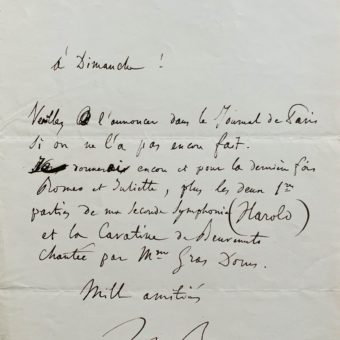 à Dimanche !
Veuillez l'annoncer dans le Journal de Paris
si on ne l'a pas encor fait.
encor et pour la dernière fois
Romeo et Juliette, plus les deux 1res
parties de ma seconde Symphonie (Harold)
et la Cavatine de Benvenuto
chantée par Mme Gras Dorus.
Mille amitiés